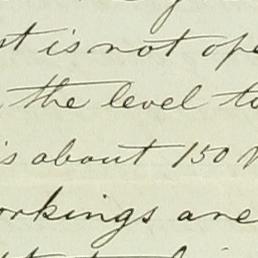 st is not ope
the level to
is about 150
orkings are